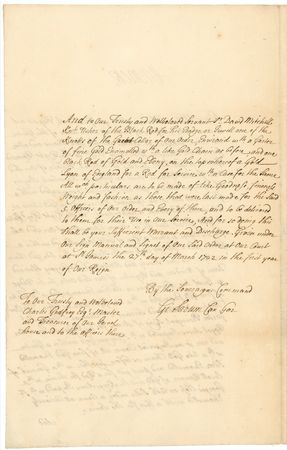 And to Our Trusty and Welbeloved Servant Sr. David Mitchell
Knt. Usher of the Black Rod for his Badge or Jewell one of the
Knotts of the Great Coller of Our Order Environd with a Garter
of fine Gold Enamelled wth. a like Gold Chaine as before and one
Black Rod of Gold and Ebony, on the top whereof a Gold
Lyon of England for a Rod for Service wth. a Case for the Same
All wch. particulars are to be made of like Goodness fineness
Weight and fashion, as those that were last made for the Said
5 Officers of Our Order and Every of them, and to be delivered
to them for their Use in Our Service, And for so doing this
Shall be your Sufficient Warrant and Discharge. Given under
Our Sign Manual and Signet of Our Said Order at Our Court
at St. James's the 27th. day of March 1702. in the first year
of Our Reign
By the Soveraigns Command
To Our Trusty and Welbeloved
Charles Godfrey Esqr. Master
and Treasurer of Our Jewel
house and to the officers there